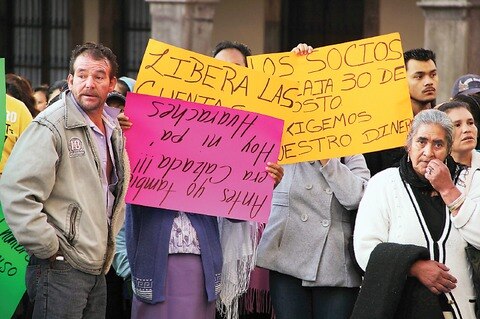 LIBERA LAS
CUENTAS
LOS SOCIOS
AJA 30 DE
OSTO
XIGEMOS
UESTRO DINER
Antes yo
era Calzada !!!
Hoy ni pa'
Huaraches